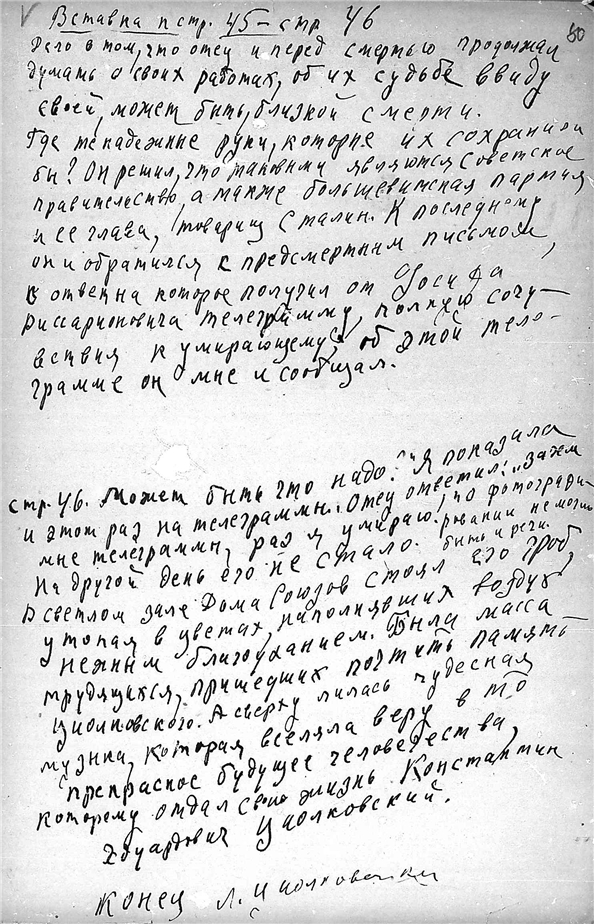 Вставка к стр. 45 – стр 46
50
Дело в том, что отец и перед смертью продолжал
думать о своих работах, об их судьбе ввиду
своей, может быть, близкой смерти.
Где те надежные руки, которые их сохранили
бы? Он решил, что таковыми являются Советское
правительство, а также большевитская партия
и ее глава, товарищ Сталин. К последнему
он и обратился с предсмертным письмом,
в ответ на которое получил от Иосифа
Виссарионовича телеграмму, полную сочу-
вствия к умирающему, об этой теле-
грамме он мне и сообщал.
стр. 46. Может быть что надо?" Я показала
и этот раз на телеграммы. Отец ответил: "Зачем
мне телеграммы, раз я умираю", о фотографи-
ровании не могло
быть и речи.
На другой день его не стало.
В светлом зале Дома Союзов стоял его гроб,
утопая в цветах, наполнявших воздух
нежным благоуханием. Была масса
трудящихся, пришедших почтить память
Циолковского. А сверху лилась чудесная
музыка, которая вселяла веру в то
прекрасное будущее человечества,
которому отдал свою жизнь Константин
Эдуардович Циолковский.
Конец Л. Циолковская